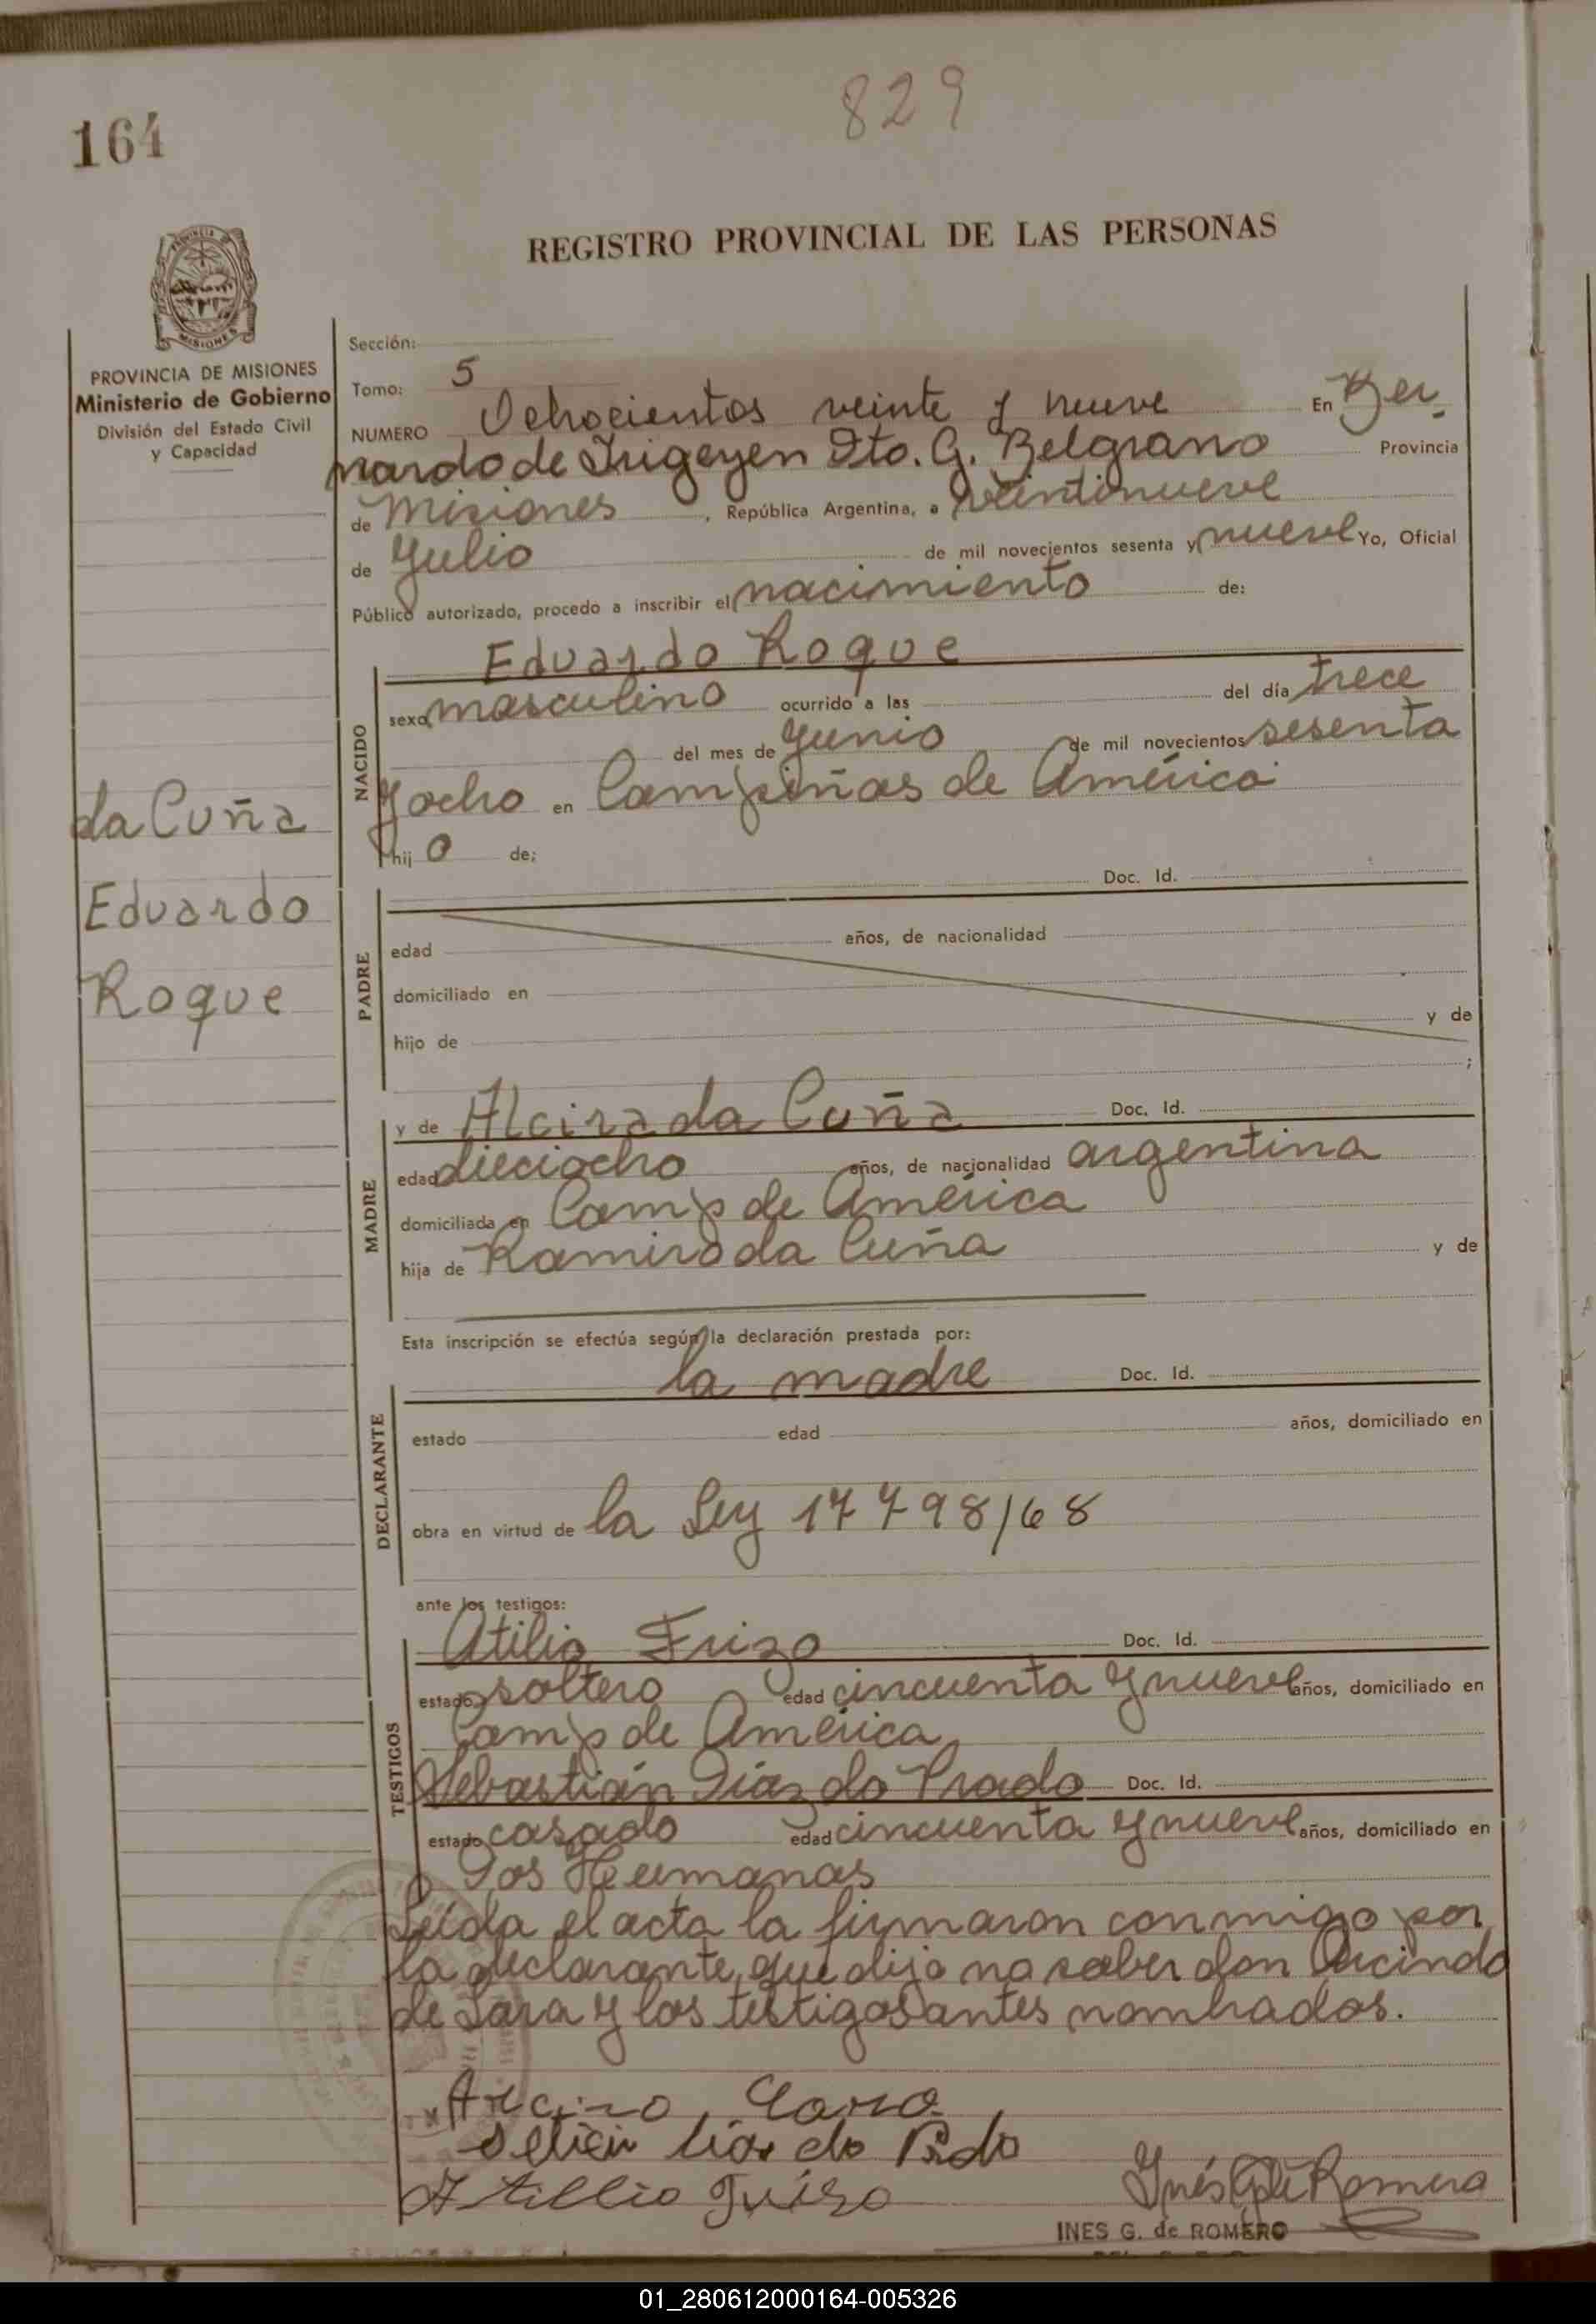 829
164
REGISTRO PROVINCIAL DE LAS PERSONAS
PROVINCIA DE MISIONES
Ministerio de Gobierno
División del Estado Civil
y Capacidad
Sección:
Tomo: 5
NUMERO Ochocientos veinte y nueve En Ber-
nardo de Irigoyen Dto. G. Belgrano Provincia
de Misiones, República Argentina, a veintinueve
de Julio de mil novecientos sesenta y nueve Yo, Oficial
Público autorizado, procedo a inscribir el nacimiento de:
Eduardo Roque
NACIDO
sexo masculino ocurrido a las del día trece
del mes de Junio de mil novecientos sesenta
y ocho en Campiñas de América
hijo de:
da Cuña
Eduardo
Roque
PADRE
Doc. Id.
edad años, de nacionalidad
domiciliado en
hijo de y de
;
MADRE
y de Alcira da Cuña Doc. Id.
edad dieciocho años, de nacionalidad argentina
domiciliada en Camp de América
hija de Ramiro da Cuña y de
Esta inscripción se efectúa según la declaración prestada por:
DECLARANTE
la madre Doc. Id.
estado edad años, domiciliado en
obra en virtud de la Ley 17798/68
ante los testigos:
TESTIGOS
Atilio Frizo Doc. Id.
estado soltero edad cincuenta y nueve años, domiciliado en
Camp de América
Sebastián Díaz do Prado Doc. Id.
estado casado edad cincuenta y nueve años, domiciliado en
Dos Hermanas
Leída el acta la firmaron conmigo por
la declarante, que dijo no saber don Arcindo
de Lara y los testigos antes nombrados.
Inés G de Romero
INES G. de ROMERO
01_280612000164-005326